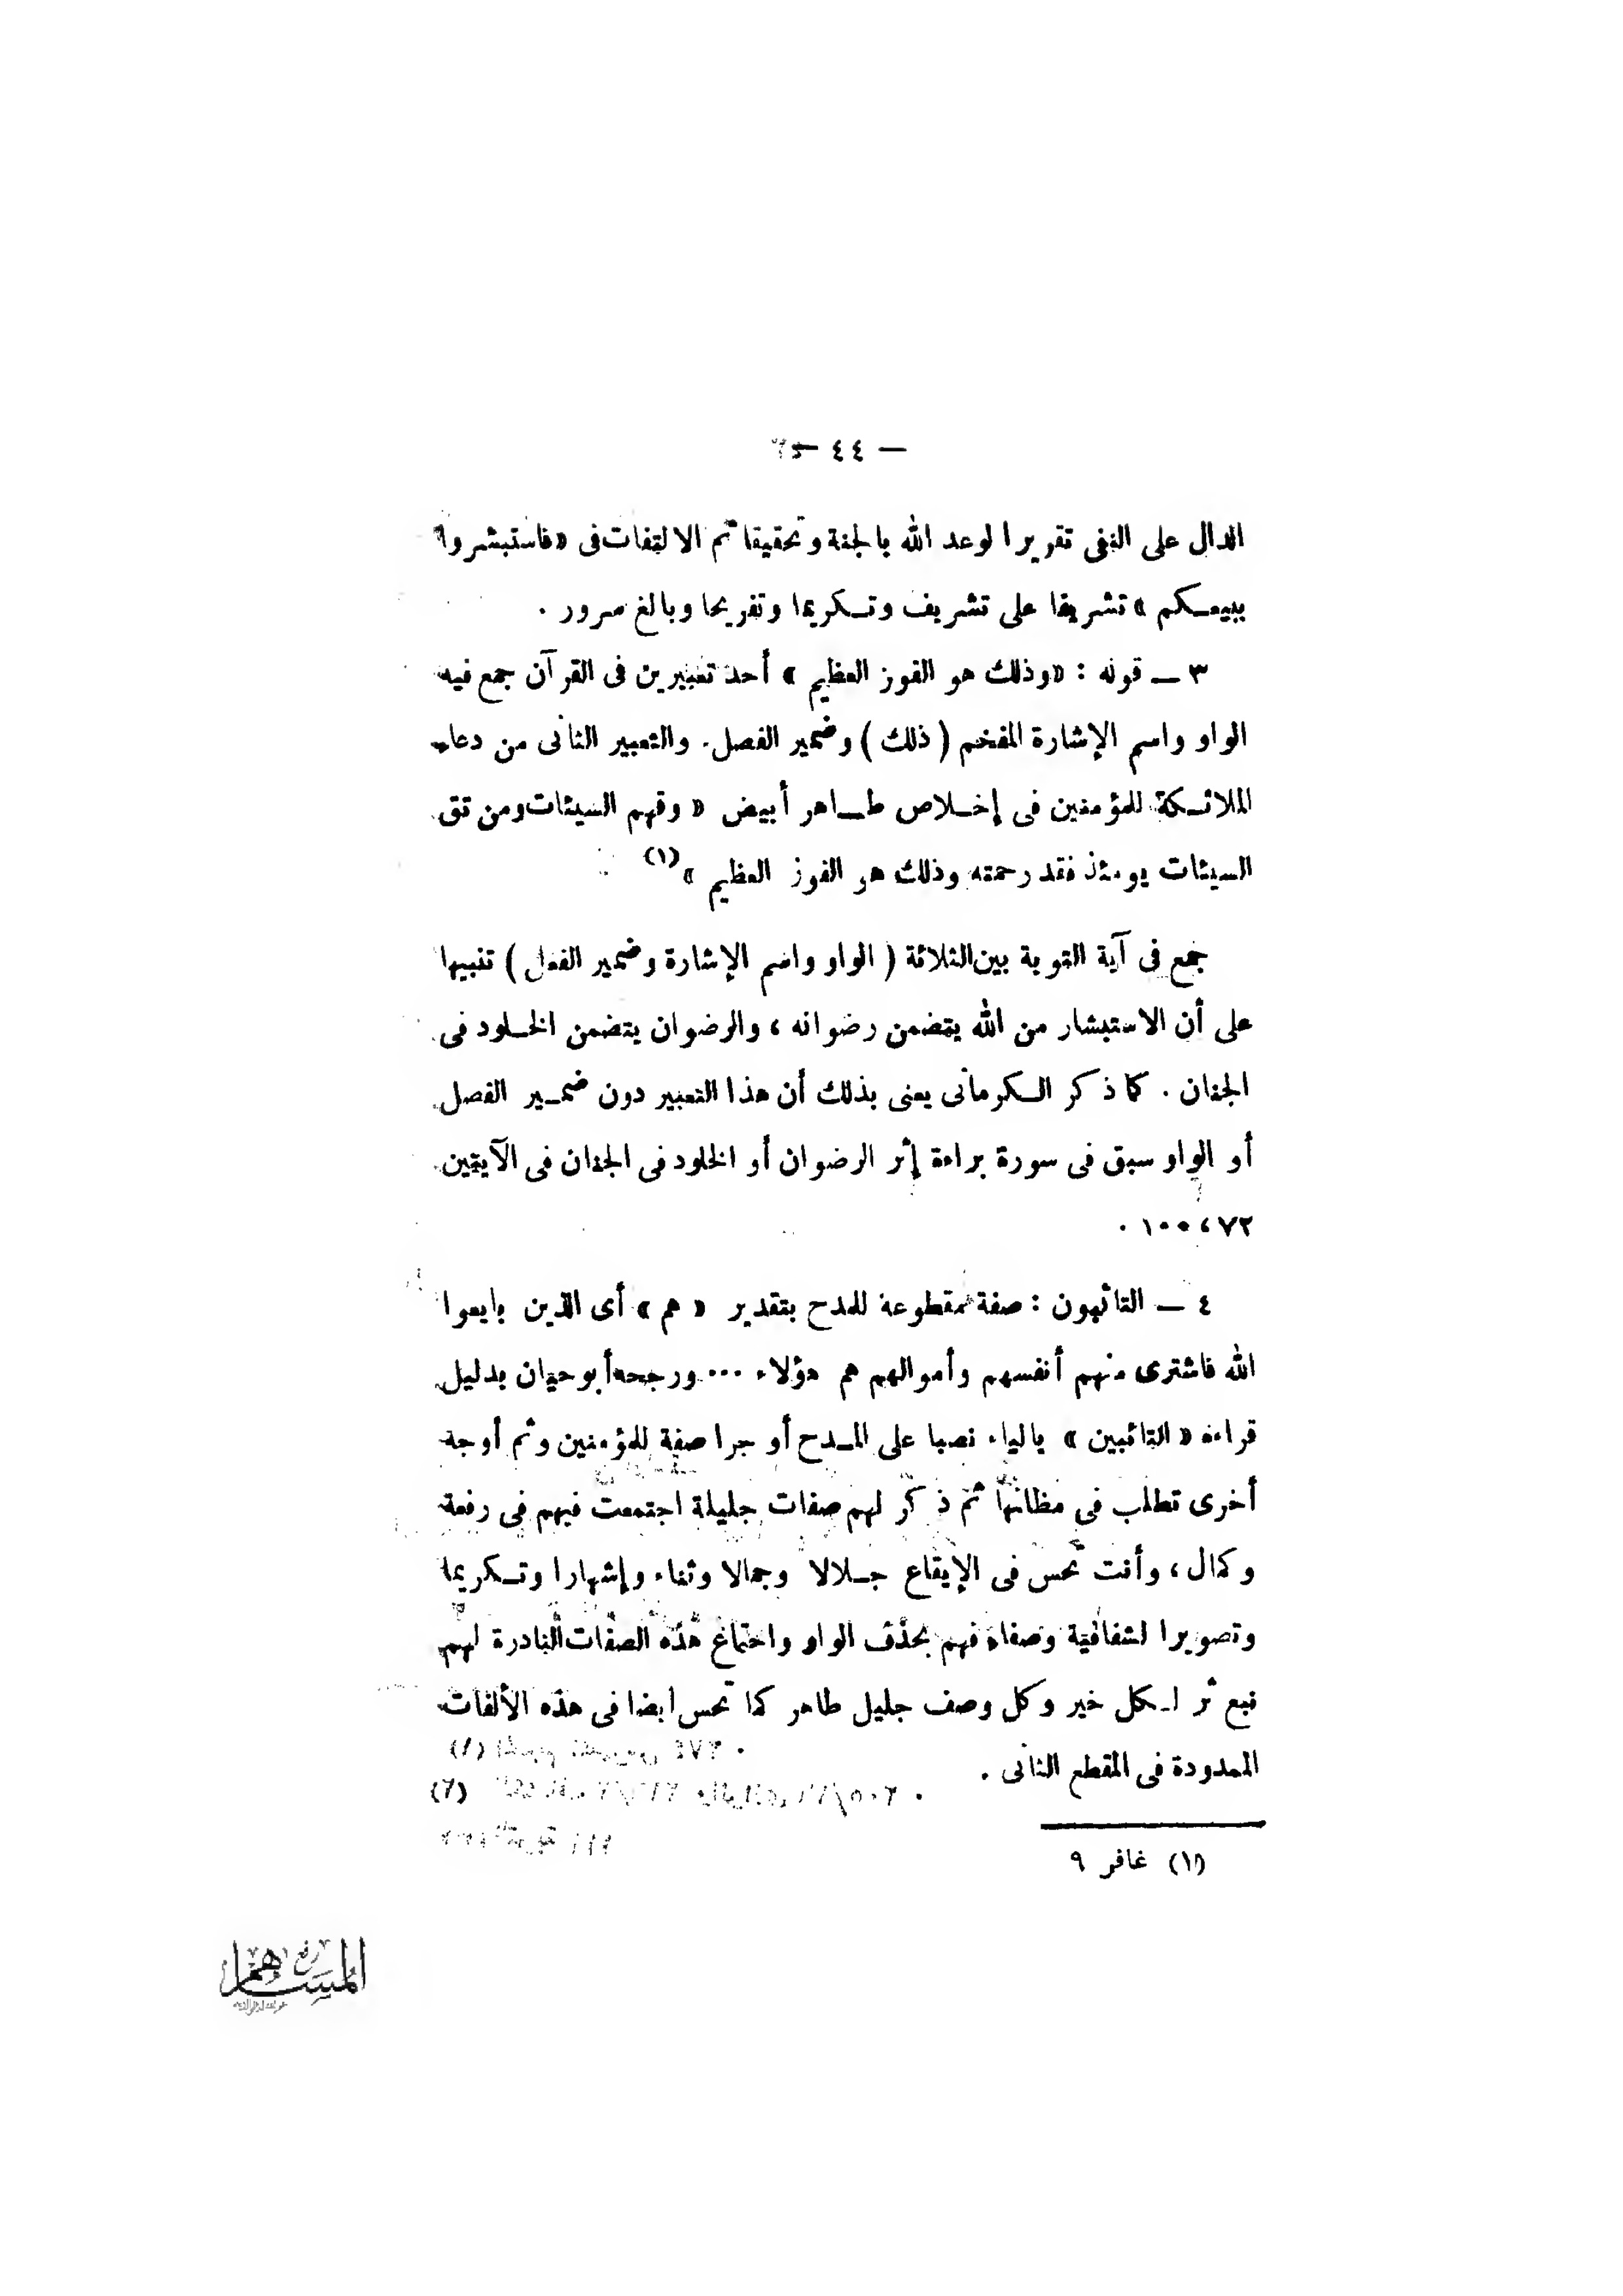 — ٤٤ —
الدال على النفى تقريرا لوعد الله بالجنة وتحقيقا ثم الالتفات فى «فاستبشروا
ببيعكم» تشريفا على تشريف وتكريما وتفريحا وبالغ سرور .
٣ — قوله : «وذلك هو الفوز العظيم» أحد تعبيرين فى القرآن جمع فيه
الواو واسم الإشارة المفخم ( ذلك ) وضمير الفصل. والتعبير الثانى من دعاء
الملائكة للمؤمنين فى إخلاص طاهر أبيض « وقهم السيئات ومن تق
السيئات يومئذ فقد رحمته وذلك هو الفوز العظيم »(١)
جمع فى آية التوبة بين الثلاثة ( الواو واسم الإشارة وضمير الفصل ) تنبيها
على أن الاستبشار من الله يتضمن رضوانه ، والرضوان يتضمن الخلود فى
الجنان . كما ذكر الكرمانى يعنى بذلك أن هذا التعبير دون ضمير الفصل
أو الواو سبق فى سورة براءة إثر الرضوان أو الخلود فى الجنان فى الآيتين
٧٢ ، ١٠٠ .
٤ — التائبون : صفة مقطوعة للمدح بتقدير « هم » أى الذين بايعوا
الله فاشترى منهم أنفسهم وأموالهم هم هؤلاء ... ورجحه أبو حيان بدليل
قراءة « التائبين » بالياء نصبا على المدح أو جرا صفة للمؤمنين وثم أوجه
أخرى تطلب فى مظانها ثم ذكر لهم صفات جليلة اجتمعت فيهم فى رفعة
وكمال ، وأنت تحس فى الإيقاع جلالا وجمالا وثناء وإشهارا وتكريما
وتصويرا لشفافية وصفاء فهم بحذف الواو واجتماع هذه الصفات النادرة لهم
نبع ثر لكل خير وكل وصف جليل طاهر كما تحس أيضا فى هذه الألفات
الممدودة فى المقطع الثانى .
(١) غافر ٩